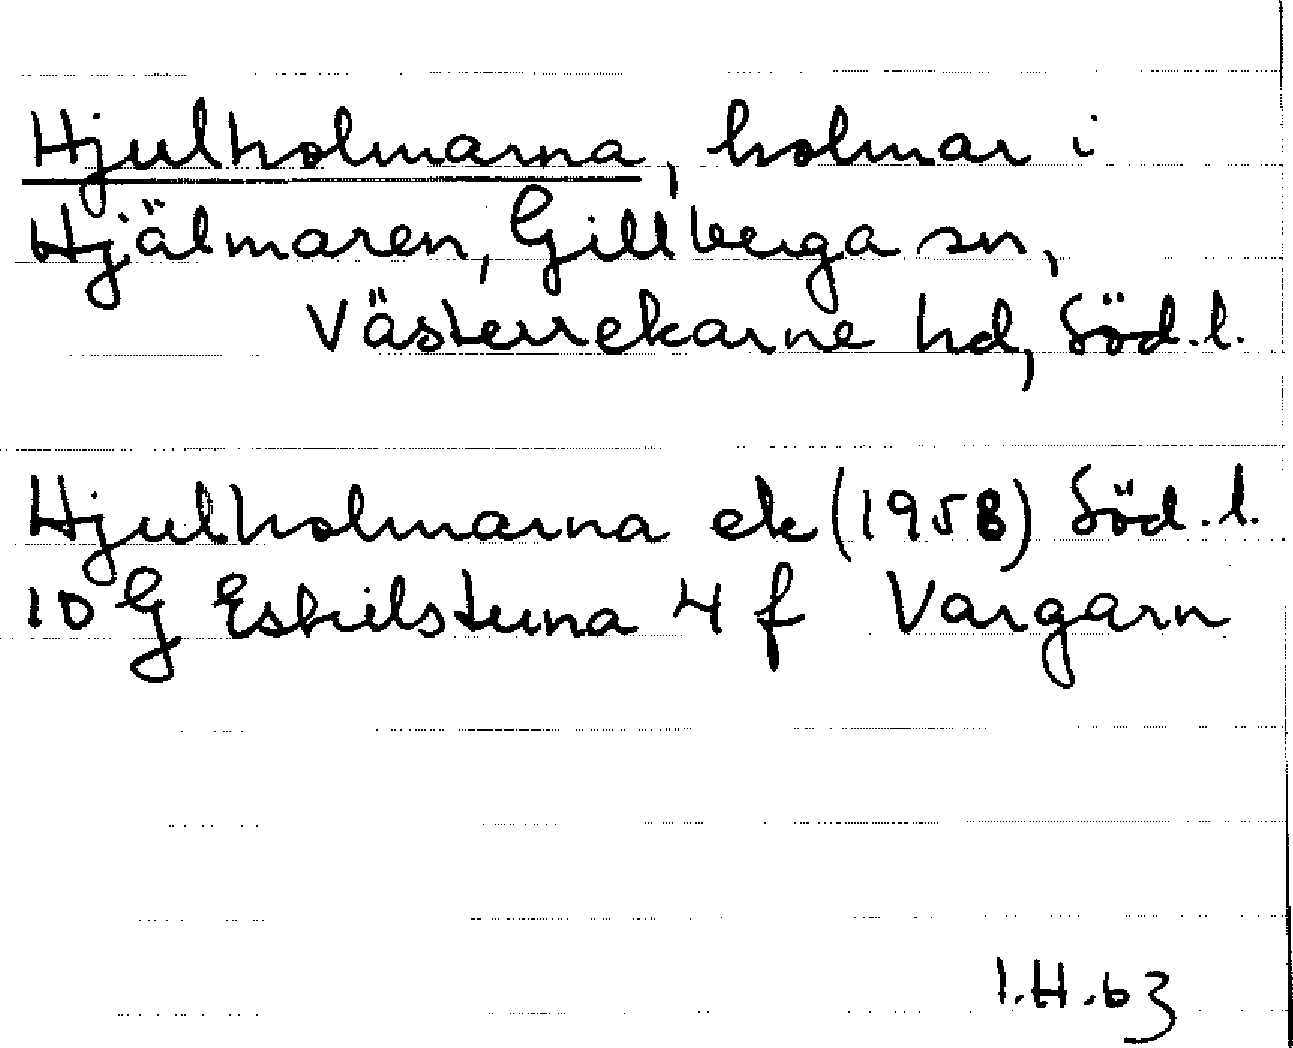 Hjulholmarna, holmar i
Hjälmaren, Gillberga sn,
Västerrekarne hd, Söd.l.
Hjulholmarna ek (1958) Söd.l.
10 G Eskilstuna 4 f Vargarn
I.H.63